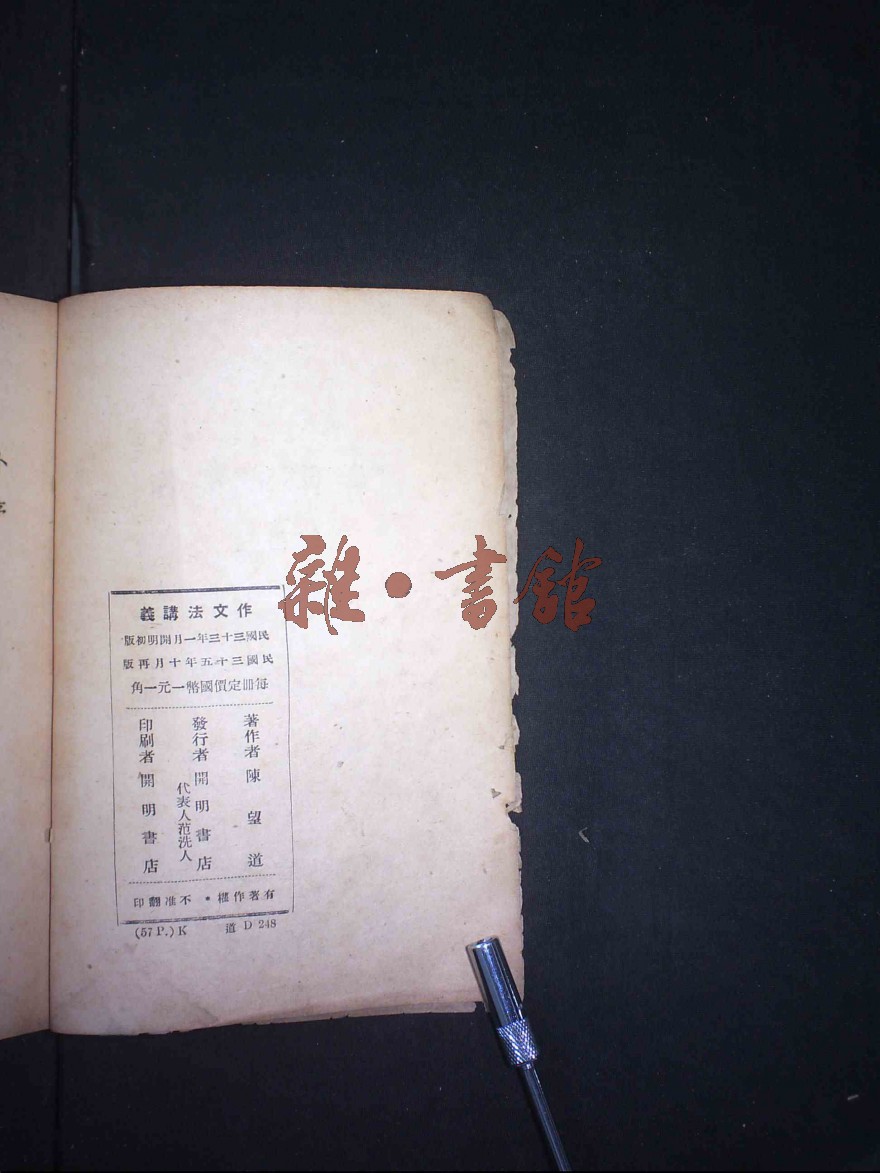 雜·書館
作文法講義
民國三十三年一月開明初版
民國三十五年十月再版
每冊定價國幣一元一角
著作者 陳望道
發行者 開明書店
代表人范洗人
印刷者 開明書店
有著作權·不准翻印
(57 P.) K 道 D 248